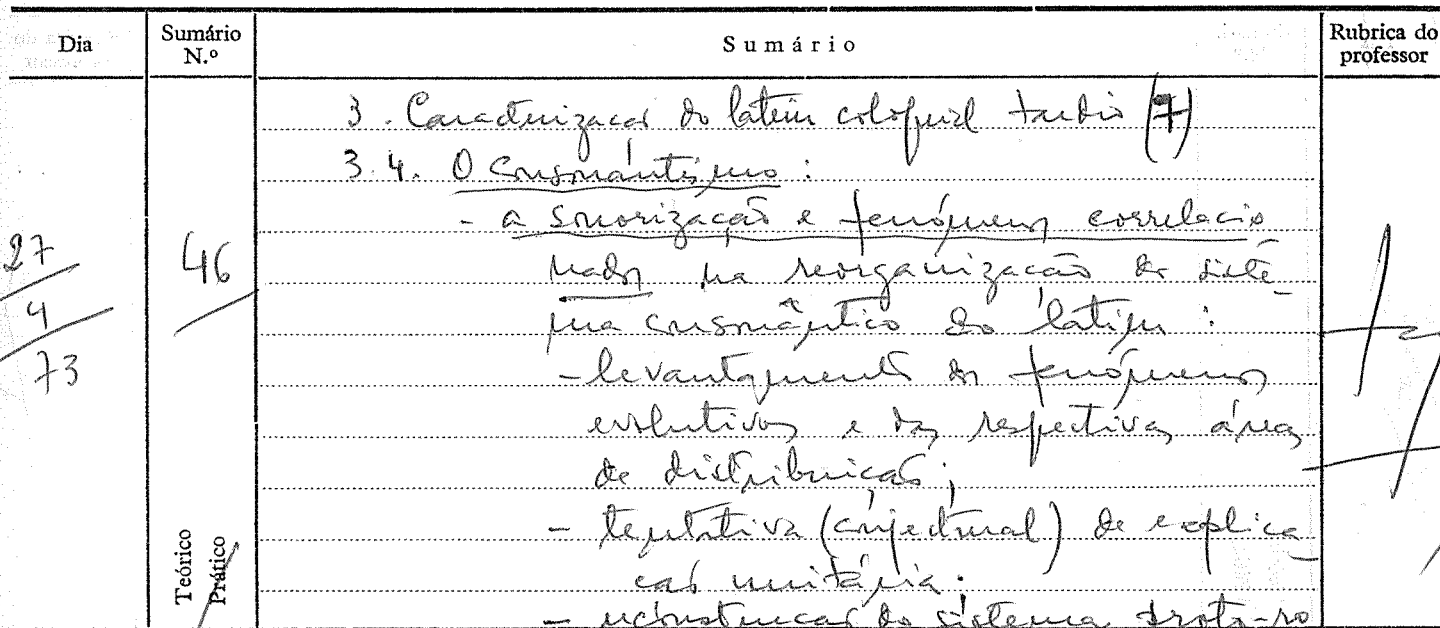 Dia
Sumário N.º
Sumário
Rubrica do professor
3. Caracterização do latim coloquial tardio (7)
3.4. O consonantismo:
- a sonorização e fenómenos correlacio
nados na reorganização do siste-
ma consonântico do latim:
- levantamento dos fenómenos
evolutivos e das respectivas áreas
de distribuição;
- tentativa (conjectural) de explica
ção unitária;
- reconstrução do sistema proto-ro
27
4
73
46
Teórico
Prático